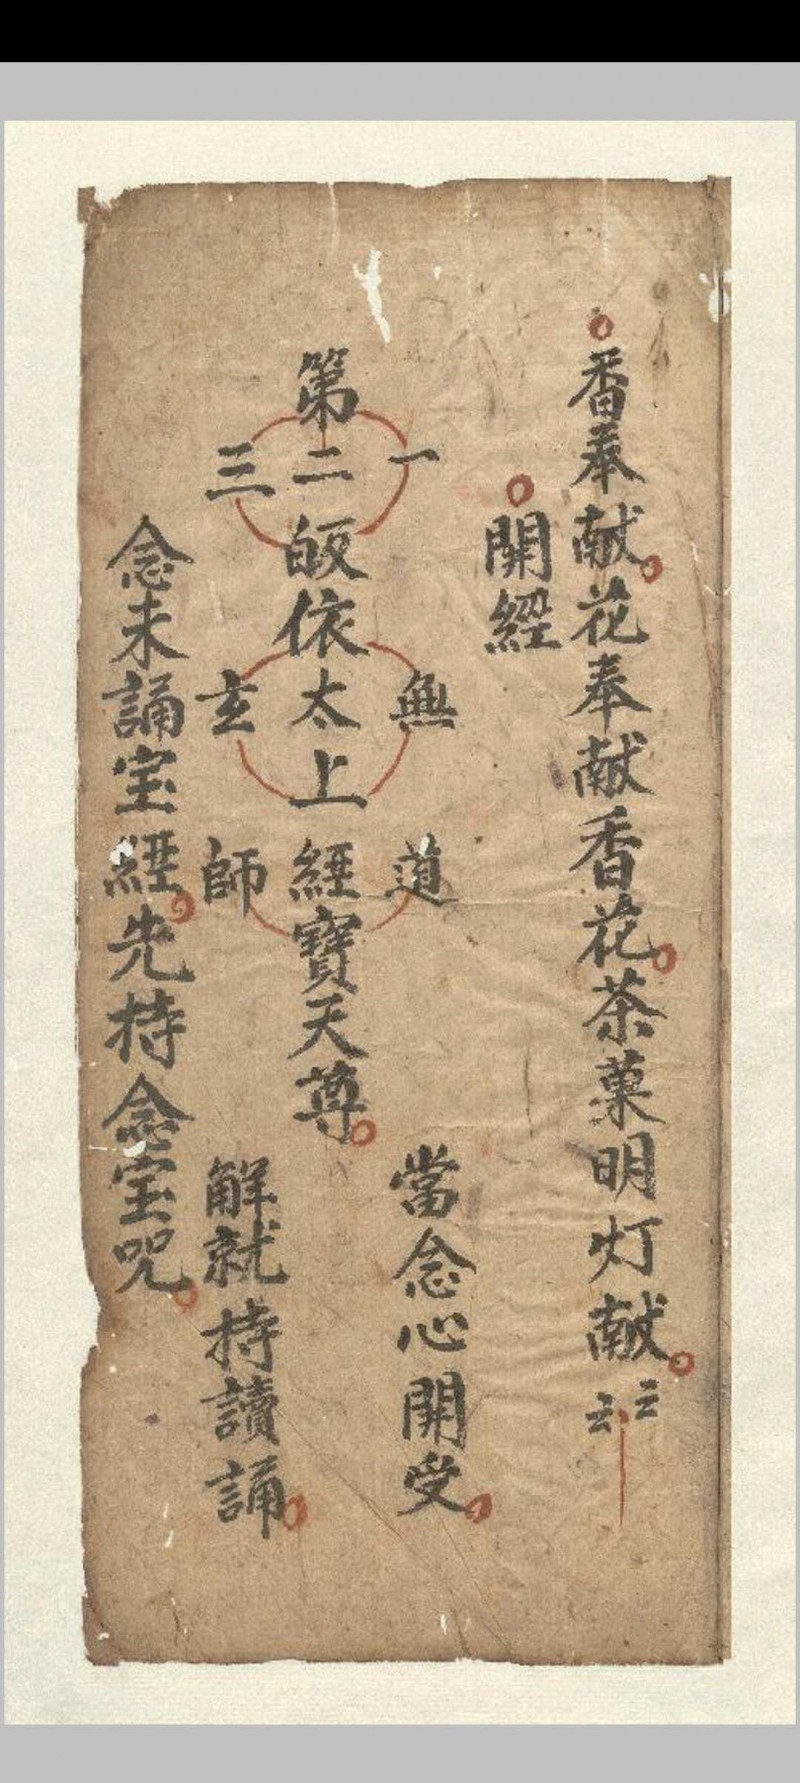 香奉献花奉献香花茶菓明灯献云云
開經
一無道
當念心開受
第二皈依太上經寶天尊
三玄師
解就持讀誦
念未誦宝經先持念宝咒